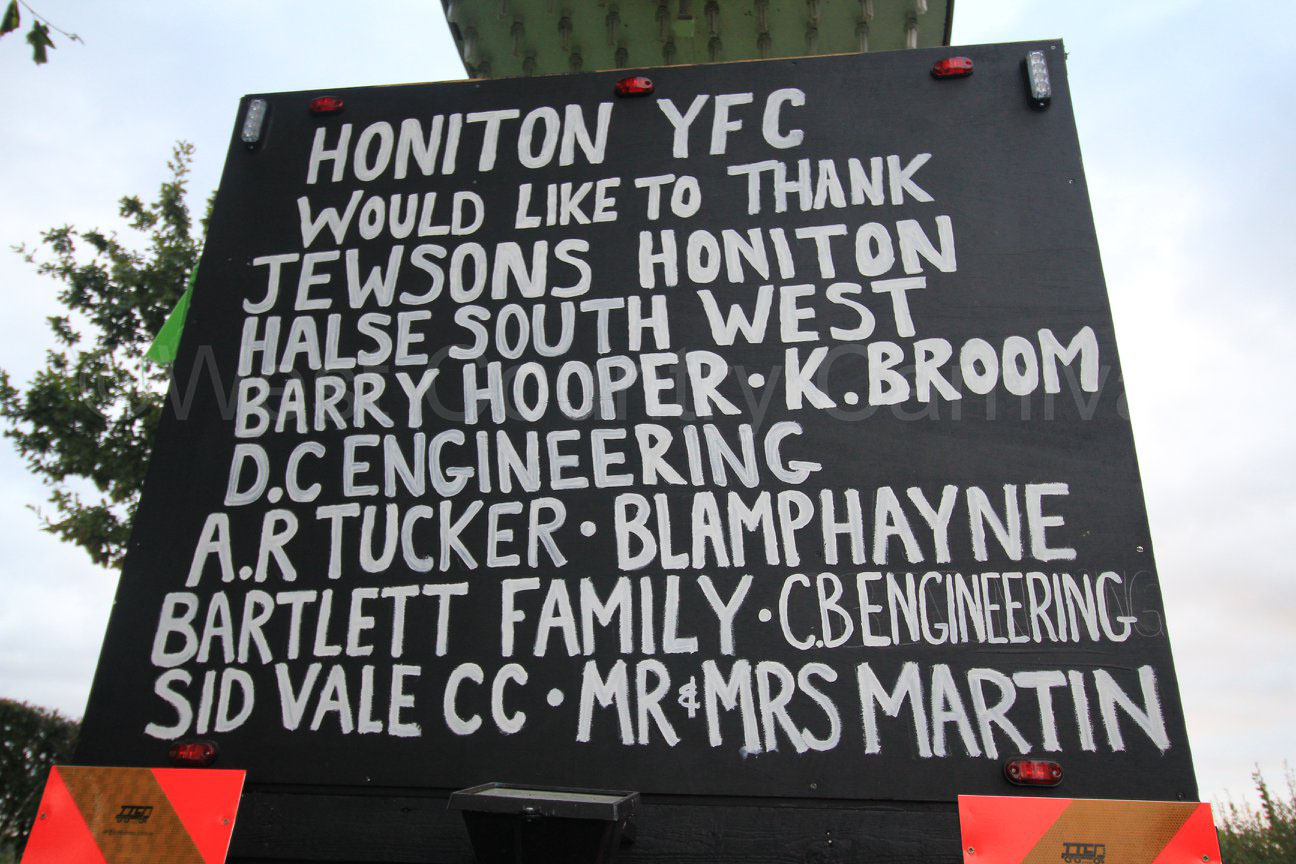 HONITON YFC
WOULD LIKE TO THANK
JEWSONS HONITON
HALSE SOUTH WEST
BARRY HOOPER · K.BROOM
D.C ENGINEERING
A.R TUCKER · BLAMPHAYNE
BARTLETT FAMILY · C.B ENGINEERING
SID VALE CC · MR & MRS MARTIN
© West Country Carniva